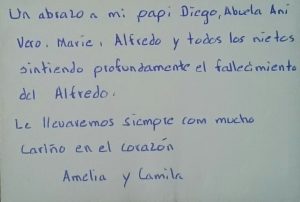 Un abrazo a mi papi Diego, Abuela Ani
Vero, Marie, Alfredo y todos los nietos
sintiendo profundamente el fallecimiento
del Alfredo.
Le llevaremos siempre com mucho
cariño en el corazón
Amelia y Camila